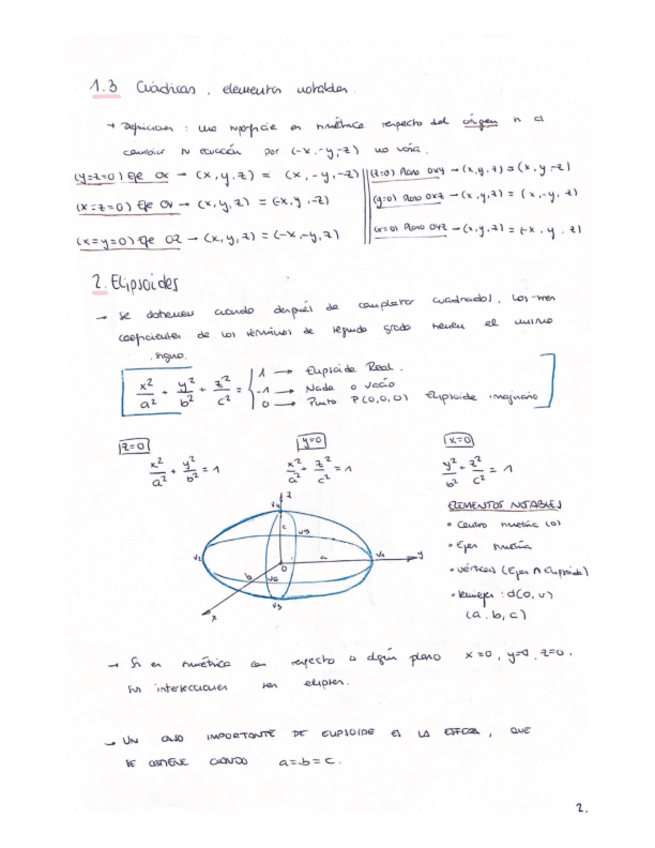 1.3 Cuádricas, elementos notables
→ Definición: una superficie es simétrica respecto del origen si al
cambiar su ecuación por (-x,-y,-z) no varía.
(y=z=0) Eje OX → (x,y,z) = (x,-y,-z) (z=0) Plano OXY → (x,y,z) = (x,y,-z)
(x=z=0) Eje OY → (x,y,z) = (-x,y,-z) (y=0) Plano OXZ → (x,y,z) = (x,-y,z)
(x=y=0) Eje OZ → (x,y,z) = (-x,-y,z) (x=0) Plano OYZ → (x,y,z) = (-x,y,z)
2. Elipsoides
→ Se obtienen cuando después de completar cuadrados, los tres
coeficientes de los términos de segundo grado tienen el mismo
signo.
x²/a² + y²/b² + z²/c² = { 1 → Elipsoide Real.
-1 → Nada o vacío
0 → Punto P(0,0,0) Elipsoide imaginario
z=0 y=0 x=0
x²/a² + y²/b² = 1 x²/a² + z²/c² = 1 y²/b² + z²/c² = 1
ELEMENTOS NOTABLES
• Centro simetría (0)
• Ejes simetría
• vértices (Ejes ∩ Elipsoide)
• Semiejes: d(0,v)
(a,b,c)
z
V4
c
V5
V2
a
V1
y
O
b
V6
V3
x
→ Si es simétrica con respecto a algún plano x=0, y=0, z=0,
sus intersecciones son elipses.
→ UN CASO IMPORTANTE DE ELIPSOIDE ES LA ESFERA, QUE
SE OBTIENE CUANDO a=b=c.
2.